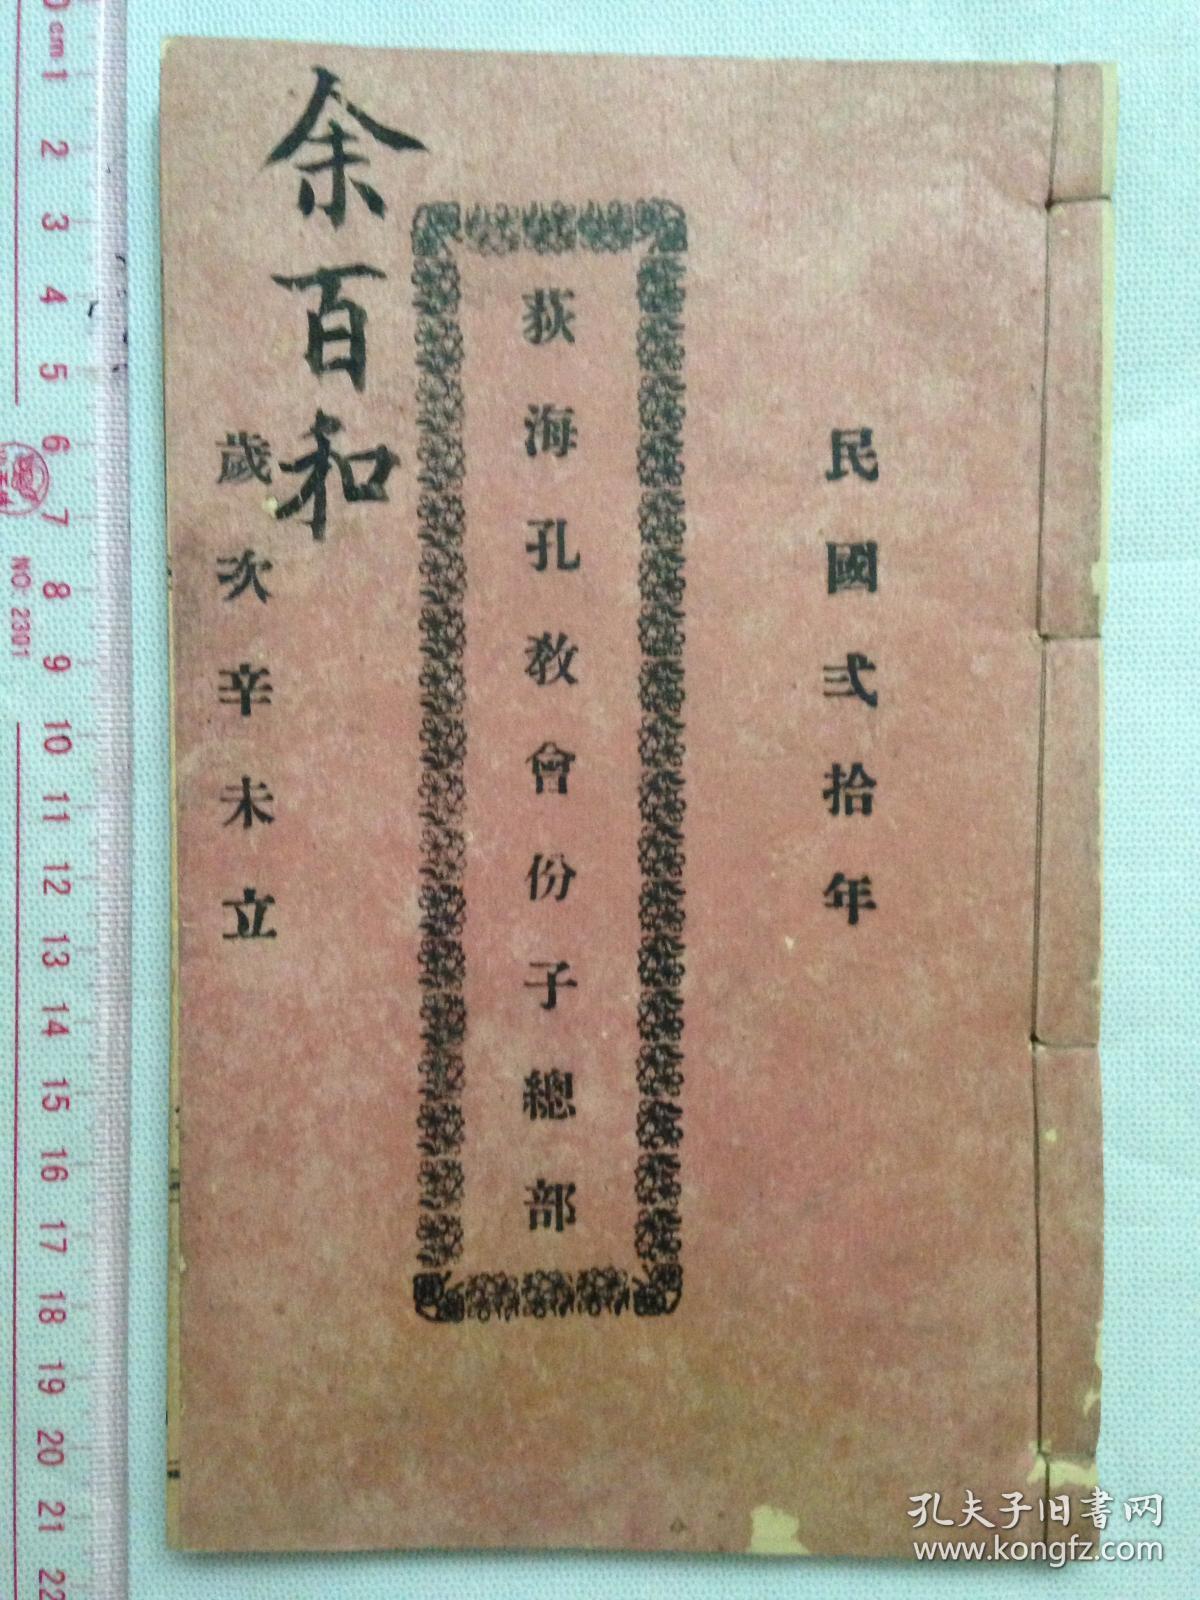 民國弍拾年
荻海孔教會份子總部
歲次辛未立
余百和
0cm 1 2 3 4 5 6 7 8 9 10 11 12 13 14 15 16 17 18 19 20 21 22
NO: 2301
孔夫子旧書网
www.kongfz.com